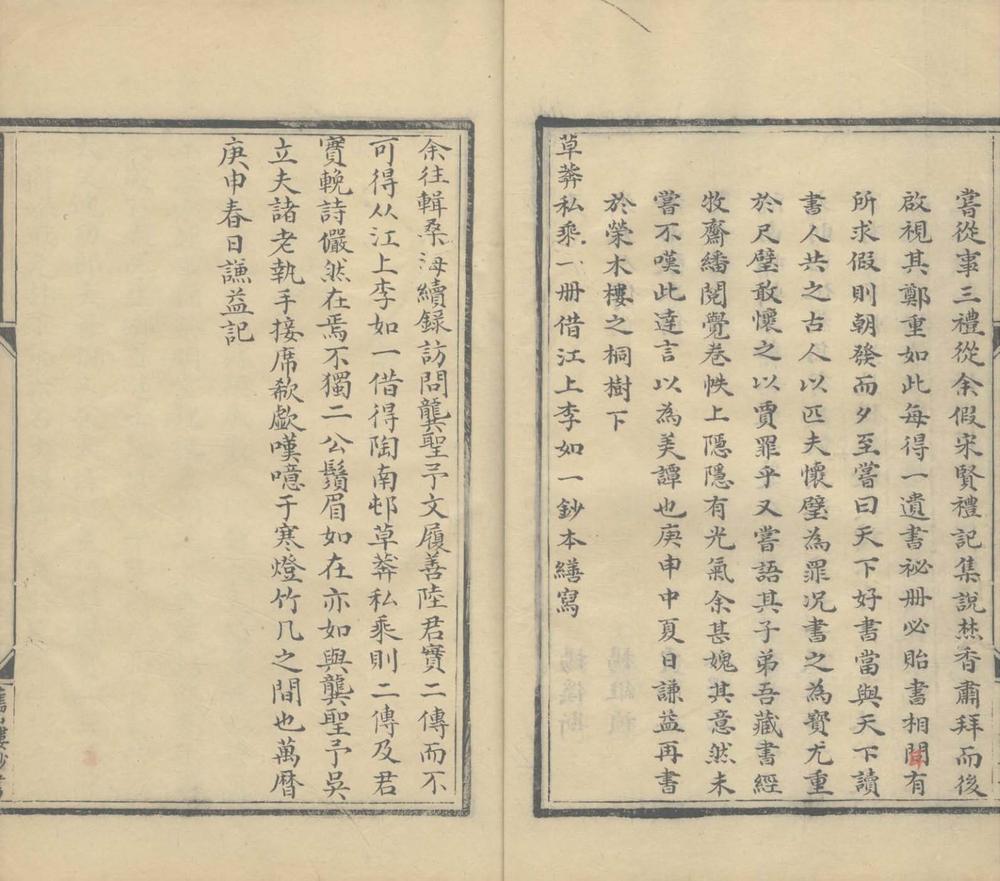 嘗從事三禮從余假宋賢禮記集說焚香肅拜而後
啟視其鄭重如此每得一遺書祕册必貽書相聞有
所求假則朝發而夕至嘗曰天下好書當與天下讀
書人共之古人以匹夫懷璧為罪况書之為寶尤重
於尺璧敢懷之以賈罪乎又嘗語其子弟吾藏書經
牧齋繙閱覺卷帙上隱隱有光氣余甚媿其意然未
嘗不嘆此達言以為美譚也庚申中夏日謙益再書
於榮木樓之桐樹下
草莽私乘一册借江上李如一鈔本繕寫
余往輯桑海續錄訪問龔聖予文履善陸君實二傳而不
可得从江上李如一借得陶南邨草莽私乘則二傳及君
實輓詩儼然在焉不獨二公鬚眉如在亦如與龔聖予吳
立夫諸老執手接席欷歔嘆噫于寒燈竹几之間也萬曆
庚申春日謙益記